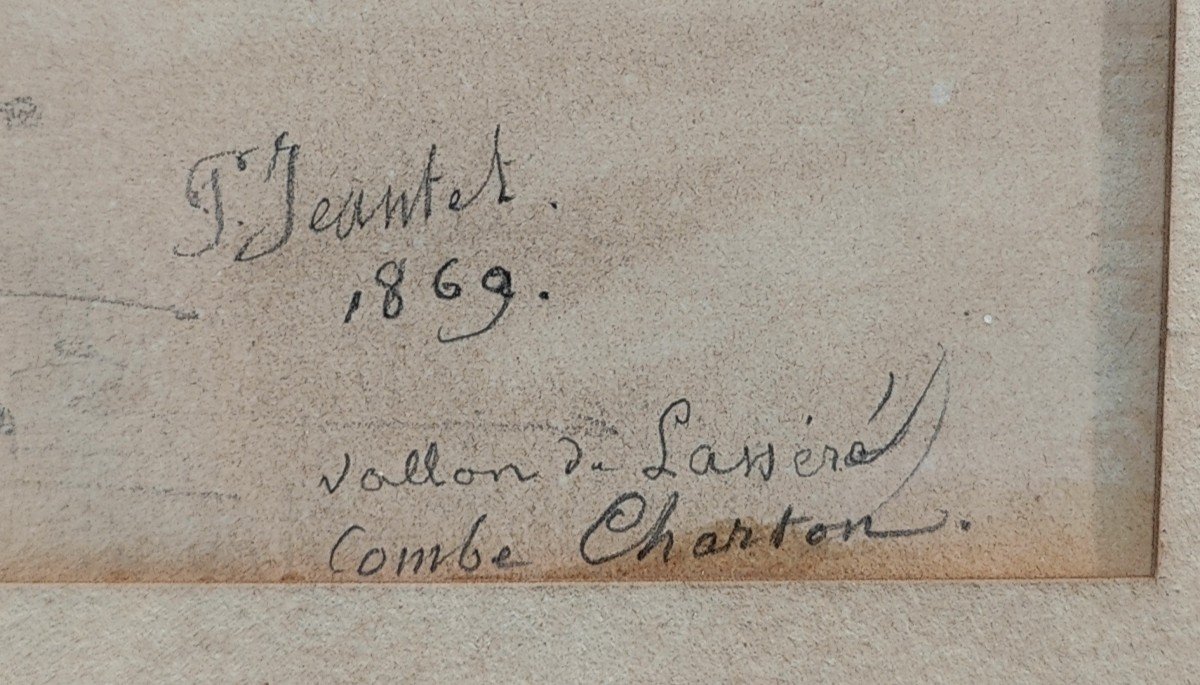 J. Jeantet.
1869.
vallon du Lasséré
Combe Charton.